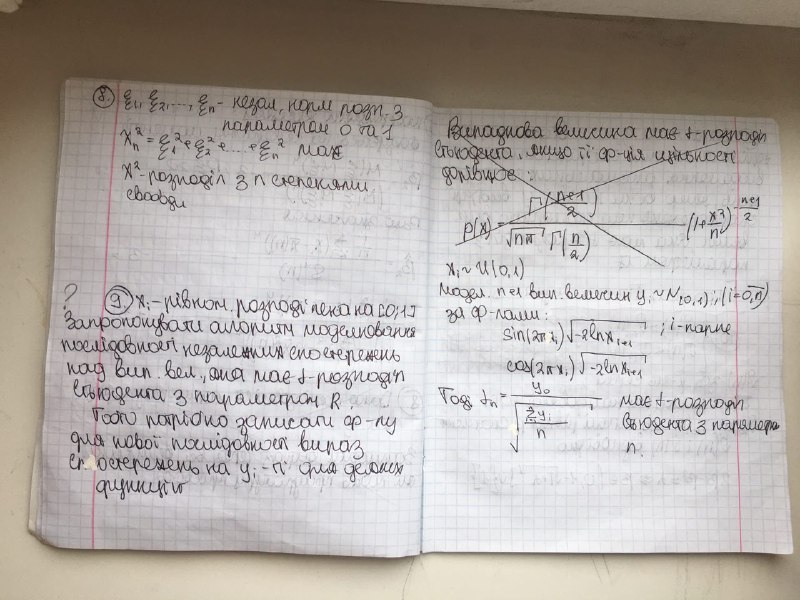 8. ξ₁, ξ₂, ..., ξₙ - незал. норм. розп. з
параметрами 0 та 1
χₙ² = ξ₁² + ξ₂² + ... + ξₙ² має
χ² - розподіл з n степенями
свободи
? 9. xᵢ - рівном. розподілена на [0;1]
Запропонувати алгоритм моделювання
послідовності незалежних спостережень
над вип. вел., яка має t-розподіл
Стьюдента з параметром R.
Тобто потрібно записати ф-лу
для нової послідовності вираз
спостережень на yᵢ - ті для деяких
функцій
Випадкова величина має t-розподіл
Стьюдента, якщо її ф-ція щільності
дорівнює:
p(x) = Γ((n+1)/2) / (√(nπ) Γ(n/2)) (1 + x²/n)^(-(n+1)/2)
xᵢ ~ U(0,1)
Модел. n+1 вип. величин yᵢ ~ N(0,1), (i=0,n)
за ф-лами:
sin(2πxᵢ)√(-2lnxᵢ₊₁) ; i - парне
cos(2πxᵢ)√(-2lnxᵢ₊₁)
Тоді tₙ = y₀ / √(Σyᵢ / n) має t-розподіл
Стьюдента з параметром
n.